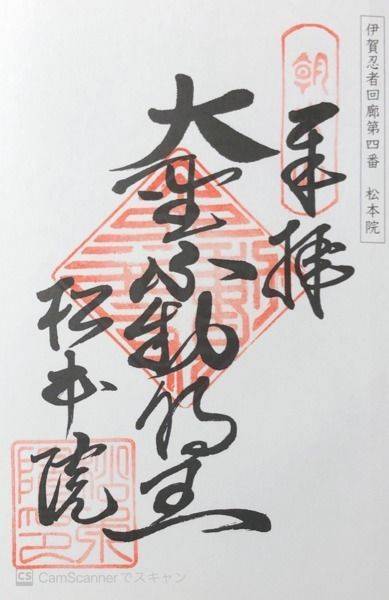 伊賀忍者回廊第四番 松本院
奉拝
大聖不動明王
松本院
CamScannerでスキャン